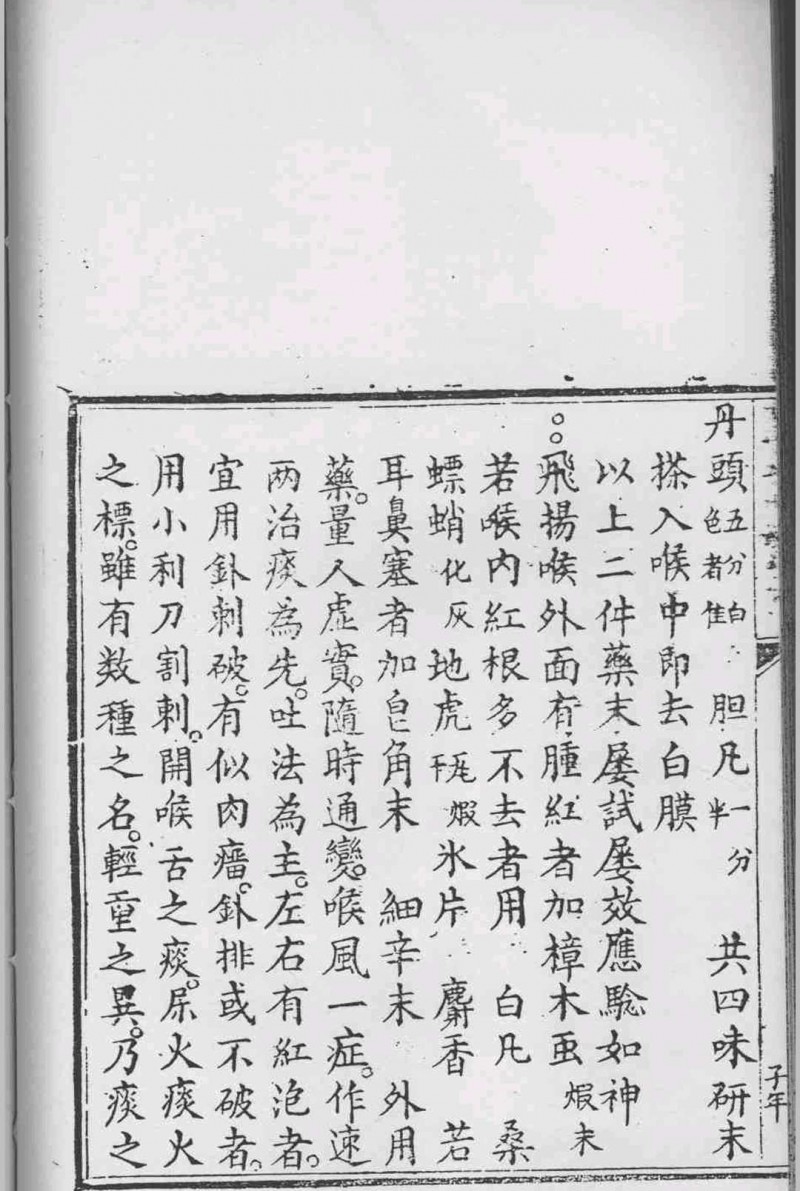 丹頭五分白色者佳胆凡一分半共四味研末
搽入喉中即去白膜
以上二件藥末屡試屡效應驗如神
飛揚喉外面有腫紅者加樟木虱煆末
若喉内紅根多不去者用白凡桑
螵蛸化灰地虎煆氷片麝香若
耳鼻塞者加皂角末細辛末外用
藥。量人虛實。隨時通變。喉風一症。作速
两治痰為先。吐法為主。左右有紅泡者。
宜用針刺破。有似肉瘤。針排或不破者。
用小利刀割刺。開喉舌之痰。尿火痰火
之標。雖有数種之名。輕重之異。乃痰之
子年